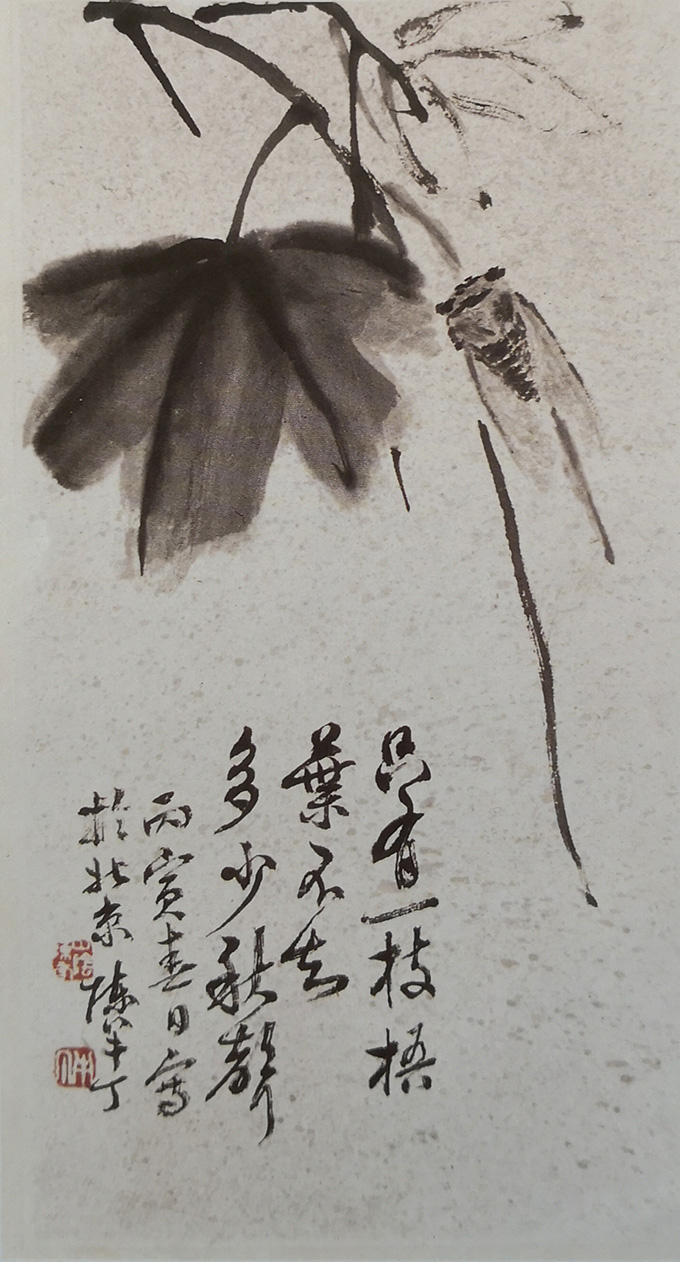 只有一枝梧
葉不知
多少秋聲
丙寅春日寫
於北京 陳半丁